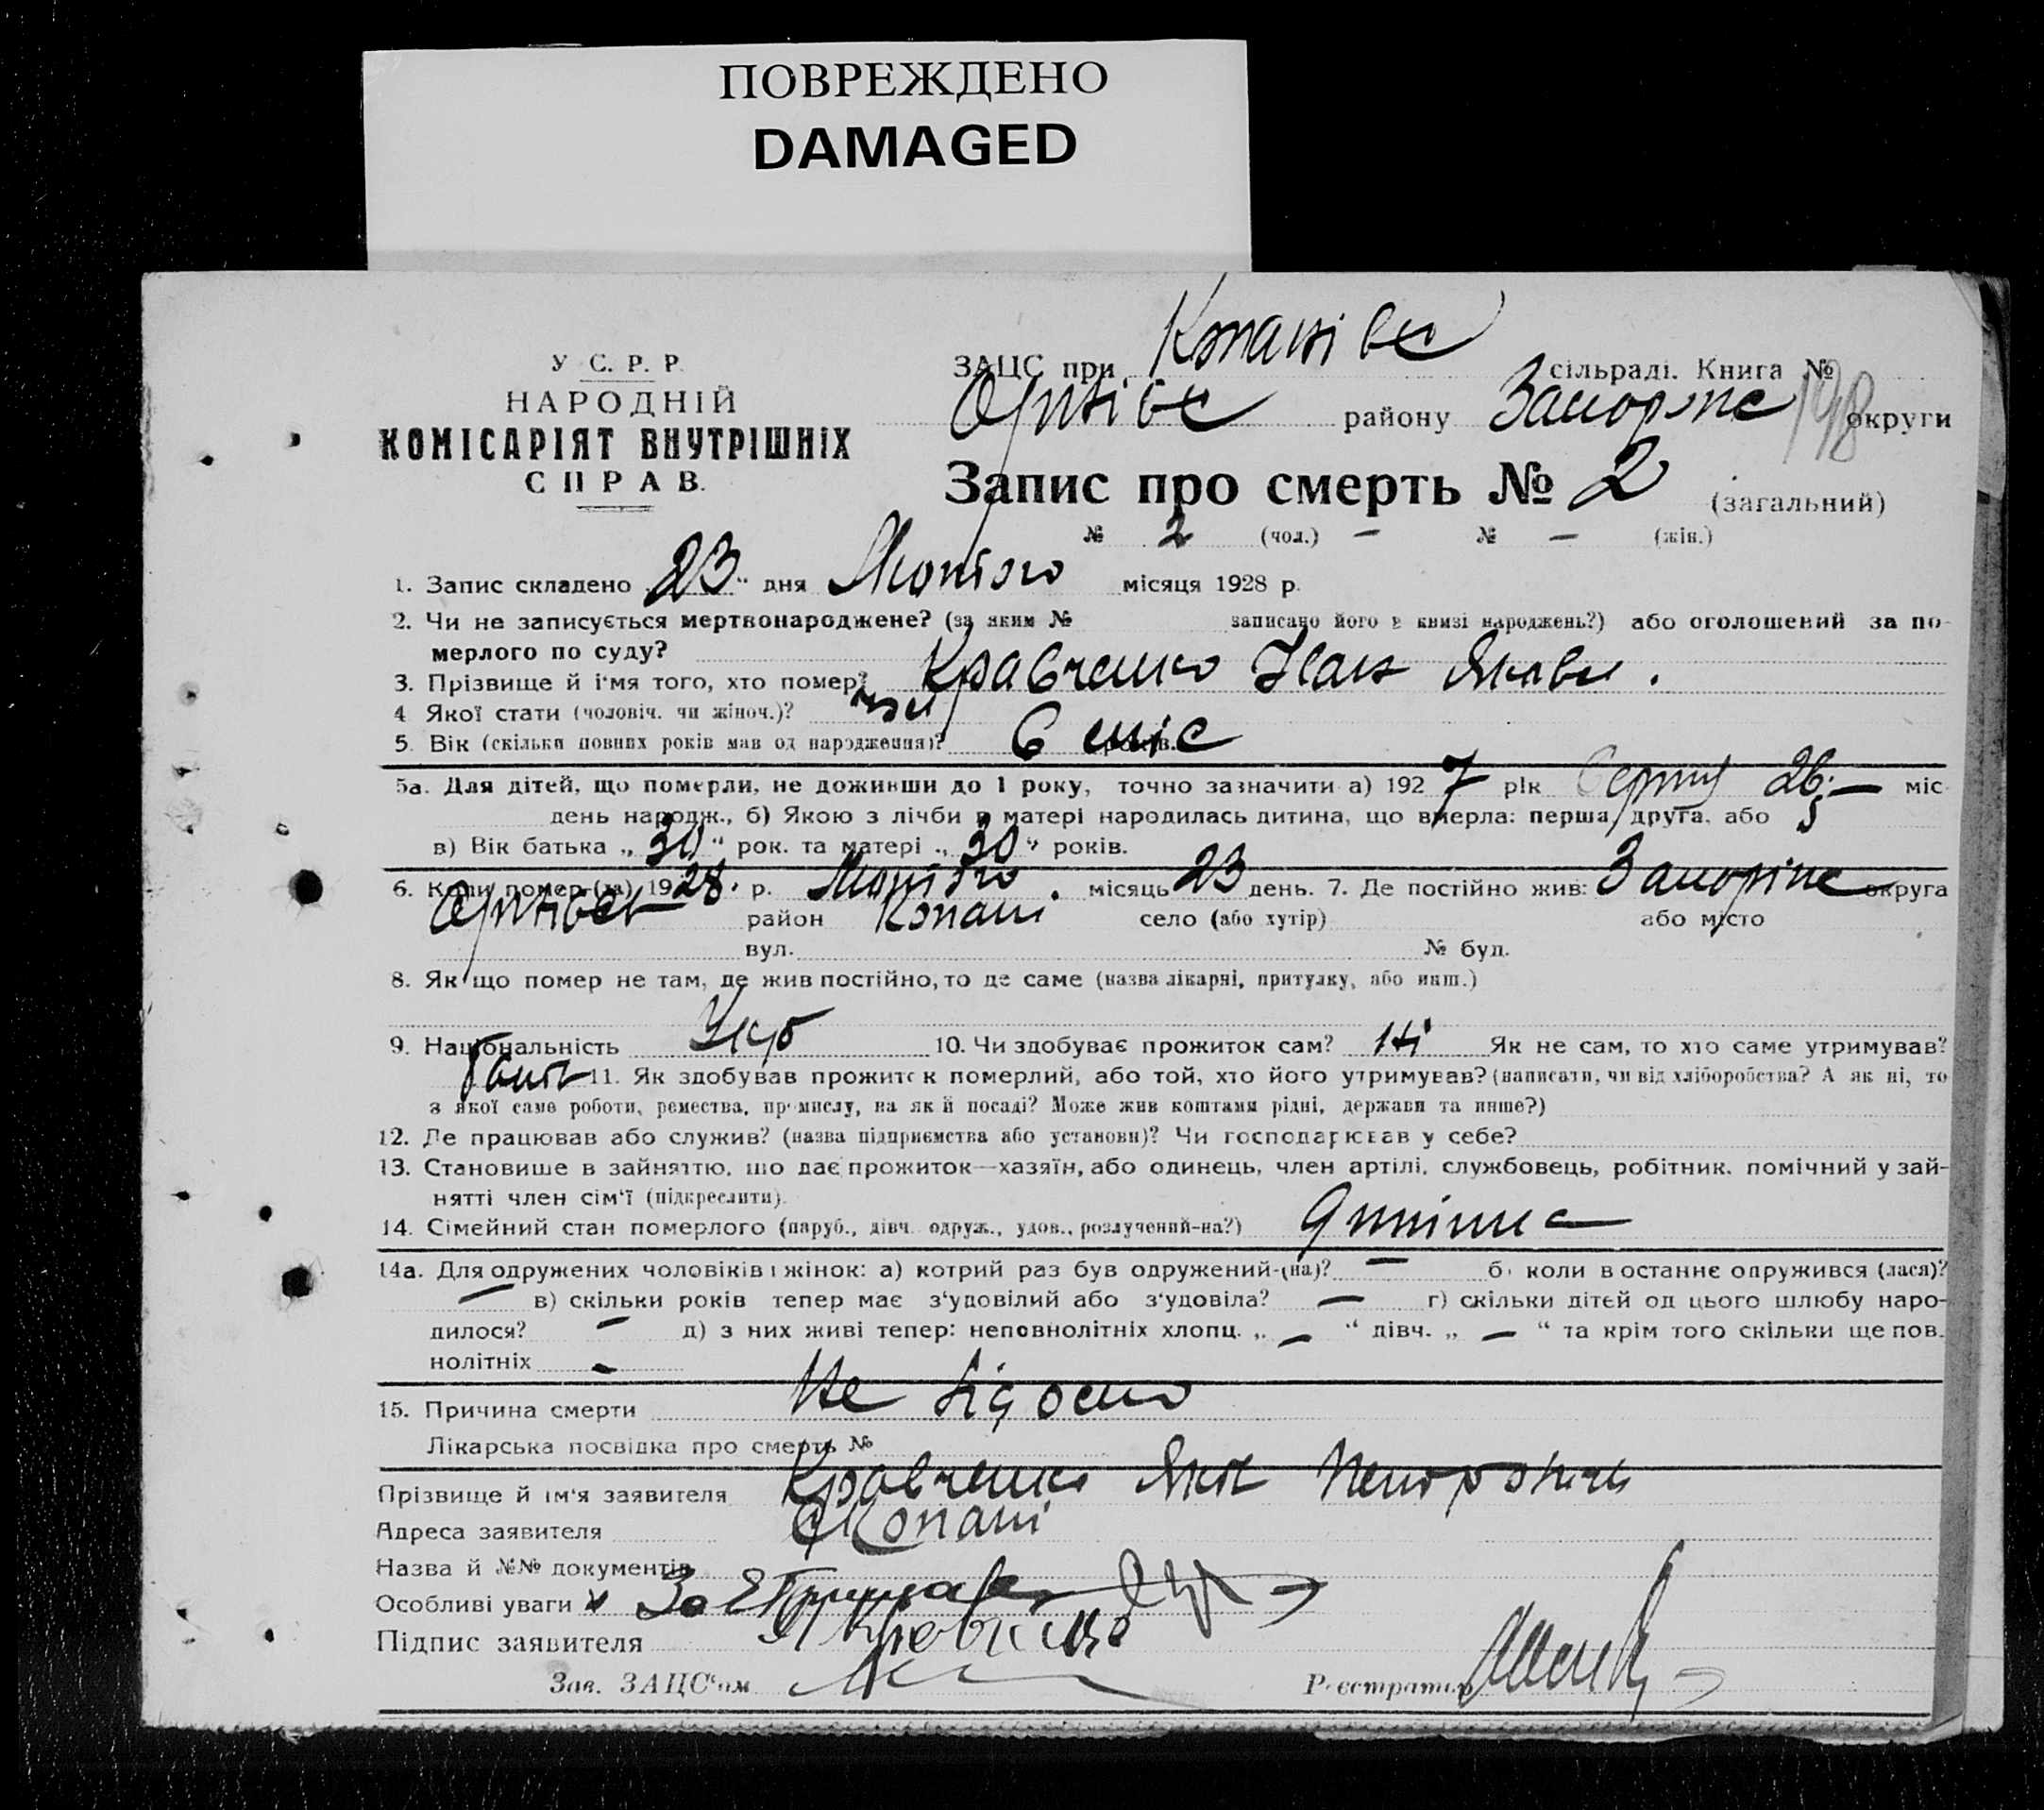 ПОВРЕЖДЕНО
DAMAGED
У С. Р. Р.
НАРОДНІЙ
КОМІСАРІЯТ ВНУТРІШНІХ
СПРАВ.
ЗАЦС при сільраді. Книга №
району округи
198
Запис про смерть № 2 (загальний)
№ 2 (чол.) — № — (жін.)
1. Запис складено 23 " дня Лютого місяця 1928 р.
2. Чи не записується мертвонароджене? (за яким № записано його в книзі народжень?) або оголошений за по-
мерлого по суду?
3. Прізвище й і'мя того, хто помер? Кравченко Іван Яковл.
4 Якої стати (чоловіч. чи жіноч.)?
5. Вік (скільки повних років мав од народження)? 6 міс
5а. Для дітей, що померли, не доживши до 1 року, точно зазначити а) 1927 рік Серпня 26 — міс
день народж., б) Якою з лічби в матері народилась дитина, що вмерла: перша, друга, або 5
в) Вік батька „ 30 " рок. та матері „ 30 " років.
6. Коли помер (ла) 1928. р. Лютого. місяць 23 день. 7. Де постійно жив: округа
район Копані село (або хутір) або місто
вул. № буд.
8. Як що помер не там, де жив постійно, то де саме (назва лікарні, притулку, або инш.)
9. Національність Укр 10. Чи здобуває прожиток сам? Ні Як не сам, то хто саме утримував?
11. Як здобував прожиток померлий, або той, хто його утримував? (написати, чи від хліборобства? А як ні, то
з якої саме роботи, ремества, промислу, на якій посаді? Може жив коштами рідні, держави та инше?)
12. Де працював або служив? (назва підприємства або установи)? Чи господарював у себе?
13. Становище в зайняттю, що дає прожиток—хазяїн, або одинець, член артілі, службовець, робітник, помічний у зай-
нятті член сім'ї (підкреслити).
14. Сімейний стан померлого (паруб., дівч. одруж., удов., розлучений-на?)
14а. Для одружених чоловіків і жінок: а) котрий раз був одружений-(на)? — б) коли востаннє одружився (лася)?
— в) скільки років тепер має з'удовілий або з'удовіла? — г) скільки дітей од цього шлюбу наро-
дилося? — д) з них живі тепер: неповнолітніх хлопц. „ — " дівч. „ — " та крім того скільки ще пов.
нолітніх —
15. Причина смерти Не відомо
Лікарська посвідка про смерть №
Прізвище й ім'я заявителя Кравченко Яків
Адреса заявителя с Копані
Назва й №№ документів
Особливі уваги
Підпис заявителя
Зав. ЗАЦС'ом Реєстратор